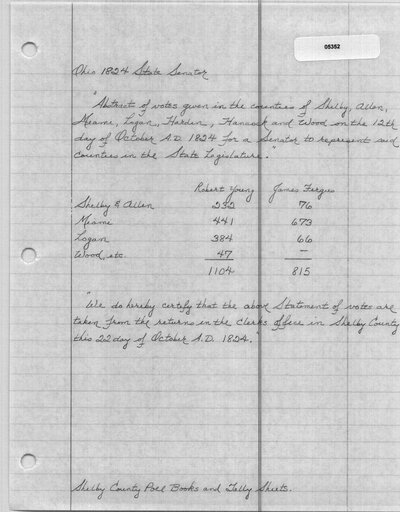 05352
Ohio 1824 State Senator
"Abstract of votes given in the counties of Shelby, Allen,
Miame, Logan, Harden, Hancock and Wood on the 12th
day of October A.D. 1824 for a Senator to represent said
Counties in the State Legislature."
Robert Young James Fergus
Shelby & Allen 232 76
Miame 441 673
Logan 384 66
Wood, etc. 47 —
1104 815
"We do hereby certify that the above Statement of votes are
taken from the returns in the Clerks office in Shelby County
this 22 day of October A.D. 1824."
Shelby County Poll Books and Tally Sheets.